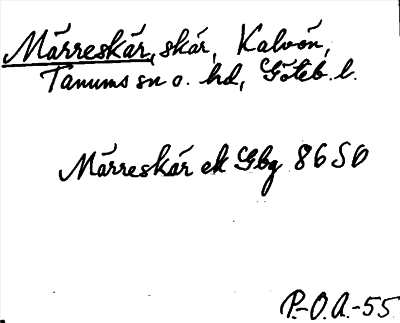 Märreskär, skär, Kalvön,
Tanums sn o. hd, Göteb. l.
Märreskär ek Gbg 86 SO
P.-O.A.-55